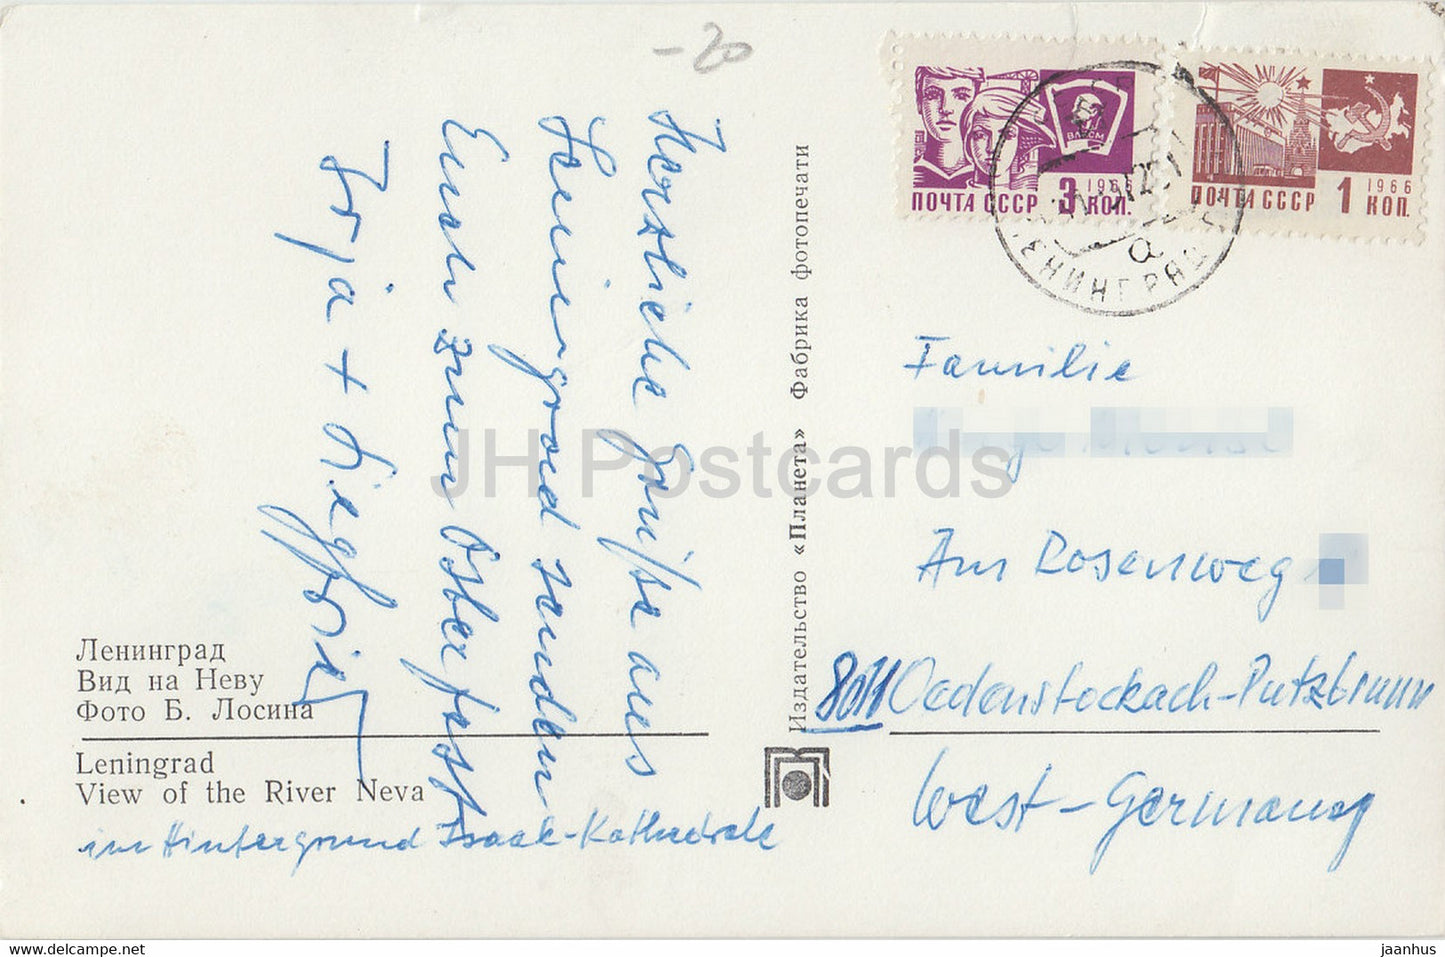 -20
Herzliche Grüße aus
Leningrad senden
Euch zum Osterfest
Inja + Siegfried
Ленинград
Вид на Неву
Фото Б. Лосина
Leningrad
View of the River Neva
im Hintergrund Isaak-Kathedrale
Издательство «Планета» Фабрика фотопечати
ВЛКСМ
1966
ПОЧТА СССР 3 КОП.
1966
ПОЧТА СССР 1 КОП.
ЛЕНИНГРАД
Familie
Am Rosenweg
8011 Oedenstockach-Putzbrunn
West-Germany
JH Postcards
https://www.hippostcard.com/store/jaanhus
jaanhus